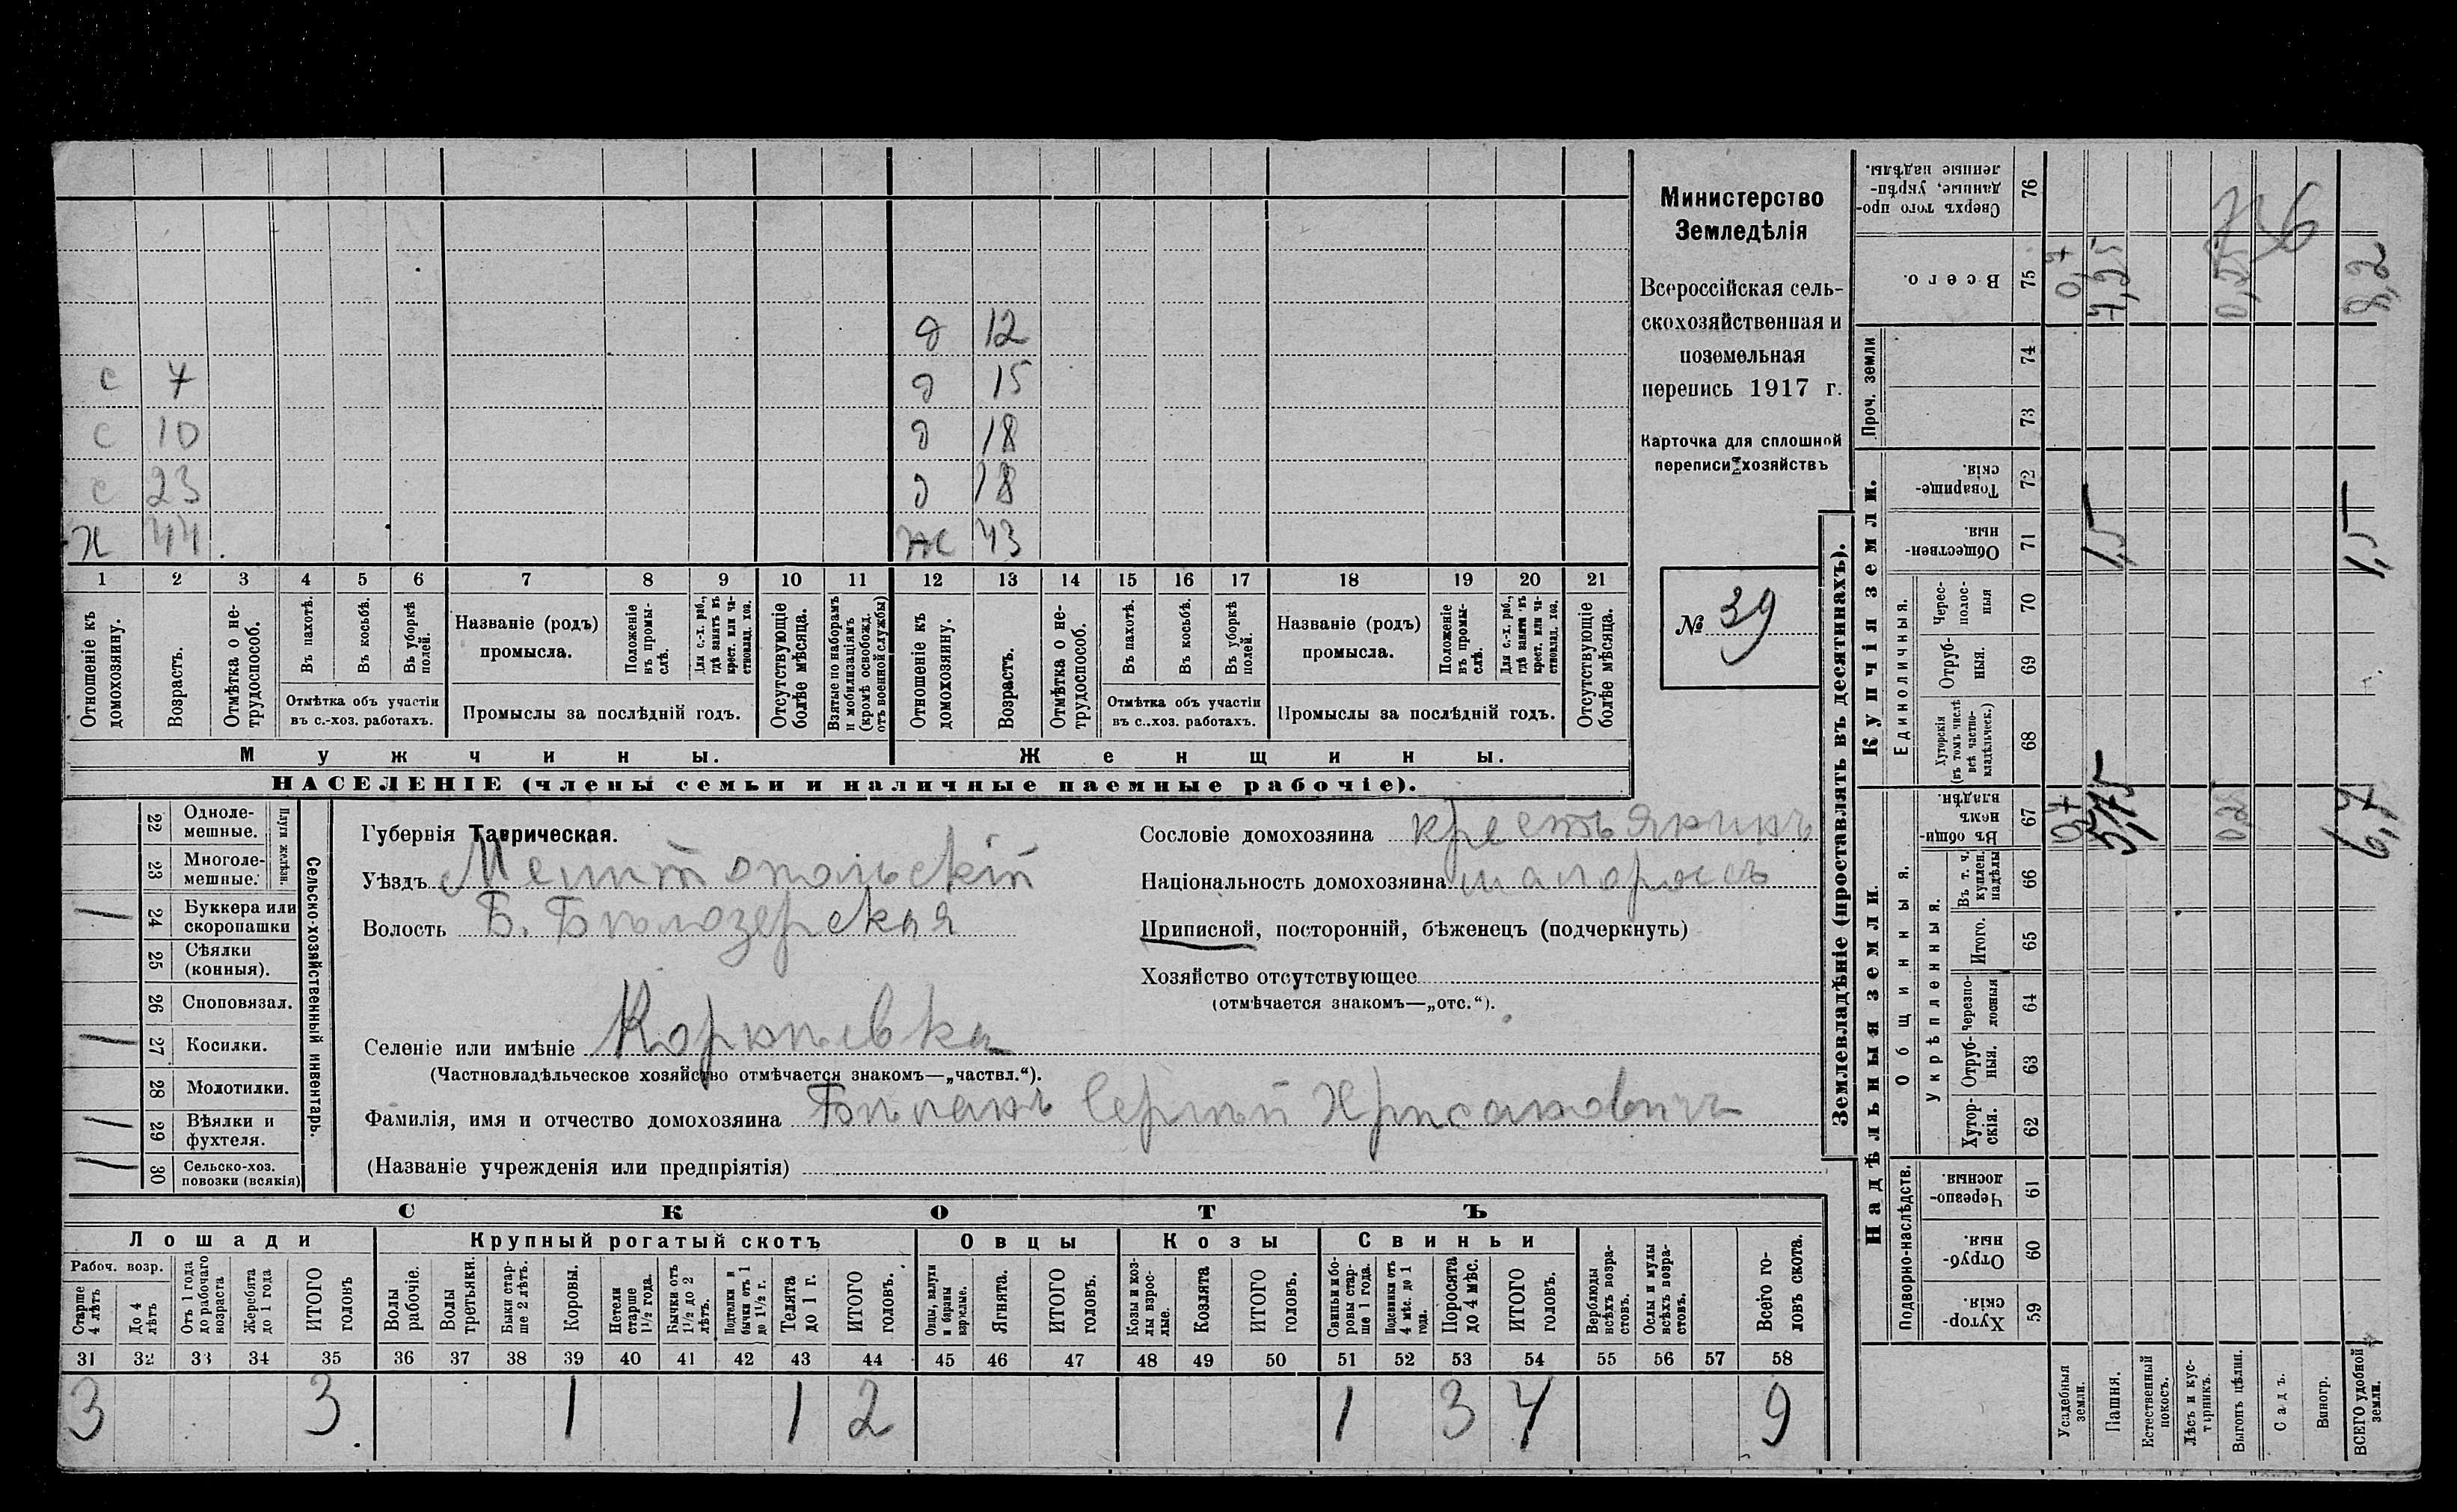 Министерство
Земледѣлія
Всероссійская сель-
скохозяйственная и
поземельная
перепись 1917 г.
Карточка для сплошной
переписи хозяйствъ
№ 39
д 12
с 7 д 15
с 10 д 18
с 23 д 18
х 44 ж 43
1 2 3 4 5 6 7 8 9 10 11 12 13 14 15 16 17 18 19 20 21
Отношеніе къ домохозяину.
Возрастъ.
Отмѣтка о не-трудоспособ.
Въ пахотѣ.
Въ косьбѣ.
Въ уборкѣ полей.
Отмѣтка объ участіи
въ с.-хоз. работахъ.
Названіе (родъ)
промысла.
Положеніе въ промы-слѣ.
Для с.-х. раб., гдѣ занятъ въ крест. или ча-стновлад. хоз.
Промыслы за послѣдній годъ.
Отсутствующіе болѣе мѣсяца.
Взятые по наборамъ и мобилизаціямъ (кромѣ освобожд. отъ военной службы)
Отношеніе къ домохозяину.
Возрастъ.
Отмѣтка о не-трудоспособ.
Въ пахотѣ.
Въ косьбѣ.
Въ уборкѣ полей.
Отмѣтка объ участіи
въ с.-хоз. работахъ.
Названіе (родъ)
промысла.
Положеніе въ промы-слѣ.
Для с.-х. раб., гдѣ занята въ крест. или ча-стновлад. хоз.
Промыслы за послѣдній годъ.
Отсутствующіе болѣе мѣсяца.
Мужчины. Женщины.
НАСЕЛЕНІЕ (члены семьи и наличные наемные рабочіе).
Сельско-хозяйственный инвентарь.
Плуги желѣзн.
22 Одноле-мешные.
23 Многоле-мешные.
24 Буккера или скоропашки
25 Сѣялки (конныя).
26 Сноповязал.
27 Косилки.
28 Молотилки.
29 Вѣялки и фухтеля.
30 Сельско-хоз. повозки (всякія)
Губернія Таврическая.
Уѣздъ Мелитопольскій
Волость Б. Бѣлозерская
Селеніе или имѣніе
(Частновладѣльческое хозяйство отмѣчается знакомъ—„частвл.“).
Фамилія, имя и отчество домохозяина Сергѣй
(Названіе учрежденія или предпріятія)
Сословіе домохозяина крестьянинъ
Національность домохозяина малороссъ
Приписной, посторонній, бѣженецъ (подчеркнуть)
Хозяйство отсутствующее
(отмѣчается знакомъ—„отс.“).
СКОТЪ
Лошади Крупный рогатый скотъ Овцы Козы Свиньи
Рабоч. возр.
Старше 4 лѣтъ
До 4 лѣтъ
Отъ 1 года до рабочаго возраста
Жеребята до 1 года
ИТОГО головъ
Волы рабочіе.
Волы третьяки.
Быки стар-ше 2 лѣтъ.
Коровы.
Нетели старше 1½ года.
Бычки отъ 1½ до 2 лѣтъ.
Подтелки и бычки отъ 1 до 1½ г.
Телята до 1 г.
ИТОГО головъ.
Овцы, валухи и бараны взрослые.
Ягнята.
ИТОГО головъ.
Козы и коз-лы взрос-лые.
Козлята
ИТОГО головъ.
Свиньи и бо-ровы стар-ше 1 года.
Подсвинки отъ 4 мѣс. до 1 года.
Поросята до 4 мѣс.
ИТОГО головъ.
Верблюды всѣхъ возра-стовъ.
Ослы и мулы всѣхъ возра-стовъ.
Всего го-ловъ скота.
31 32 33 34 35 36 37 38 39 40 41 42 43 44 45 46 47 48 49 50 51 52 53 54 55 56 57 58
3 3 1 1 2 1 3 4 9
Землевладѣніе (проставлять въ десятинахъ).
Купчія земли.
Надѣльныя земли.
Проч. земли
Единоличныя.
Общинныя.
Укрѣпленныя.
Подворно-наслѣдств.
76 Сверхъ того про-данные, укрѣп-ленные надѣлы.
75 Всего.
74
73
72 Товарище-скія.
71 Обществен-ныя.
70 Черес-полос-ныя
69 Отруб-ныя.
68 Хуторскія (въ томъ числѣ всѣ частно-владѣльческ.)
67 Въ общин-немъ владѣн.
66 Въ т. ч. куплен. надѣлы
65 Итого.
64 Черезпо-лосныя
63 Отруб-ныя.
62 Хутор-скія.
61 Черезпо-лосныя.
60 Отруб-ныя.
59 Хутор-скія.
Усадебныя земли.
Пашня.
Естественный покосъ.
Лѣсъ и кус-тарникъ.
Выгонъ цѣлин.
Садъ.
Виногр.
ВСЕГО удобной земли.
0,7 7,25 0,25 8,2
1,5 1,5
0,7 5,75 0,25 6,7
736